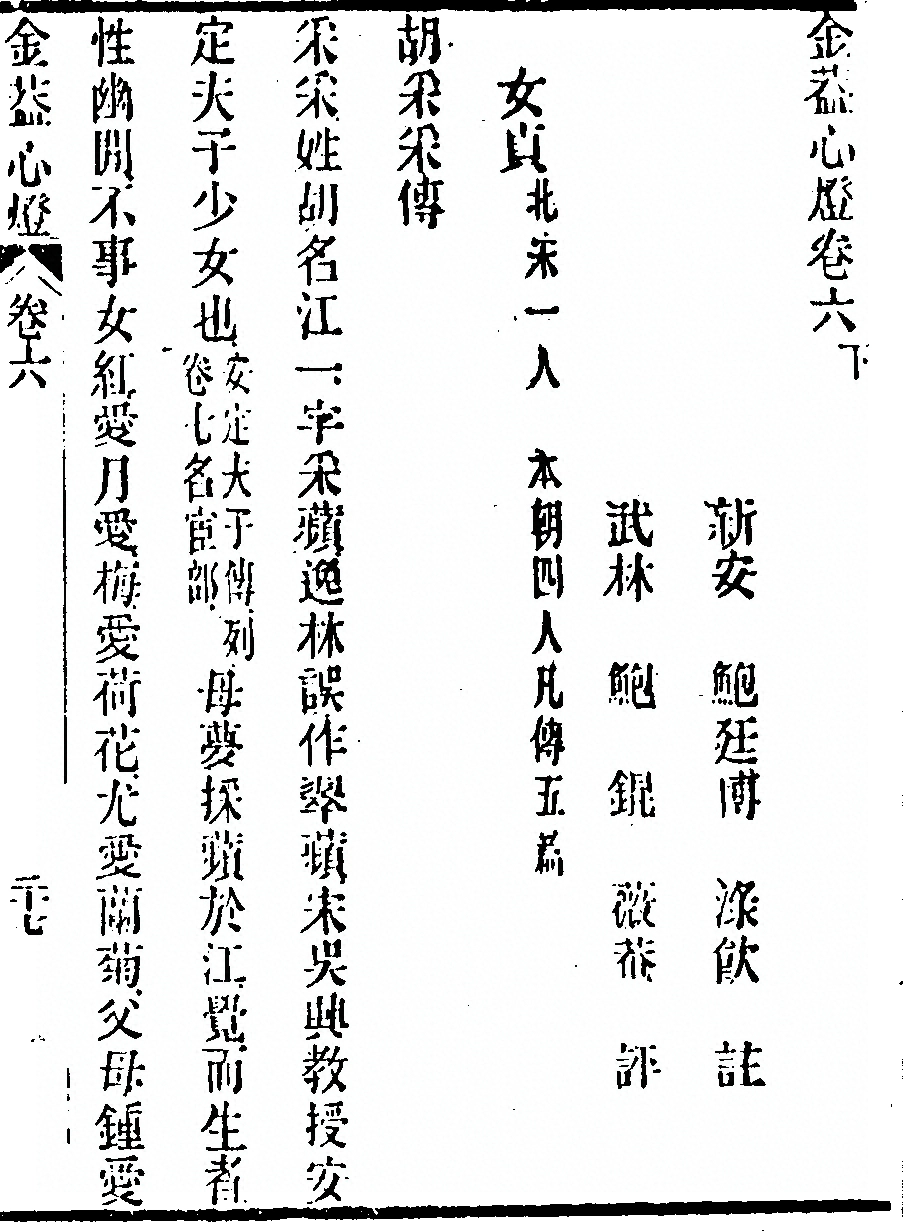 金葢心燈卷六下
新安 鮑廷博 淥飮 註
武林 鮑錕 薇菴 評
女貞北宋一人 本朝四人凡傳五篇
胡采采傳
采采姓胡名江一字采蘋逸林誤作翠蘋宋吳興教授安
定夫子少女也安定夫子傳列卷七名宦部母夢採蘋於江覺而生者
性幽閒不事女紅愛月愛梅愛荷花尤愛蘭菊父母鍾愛
金葢心燈 卷六 二十七